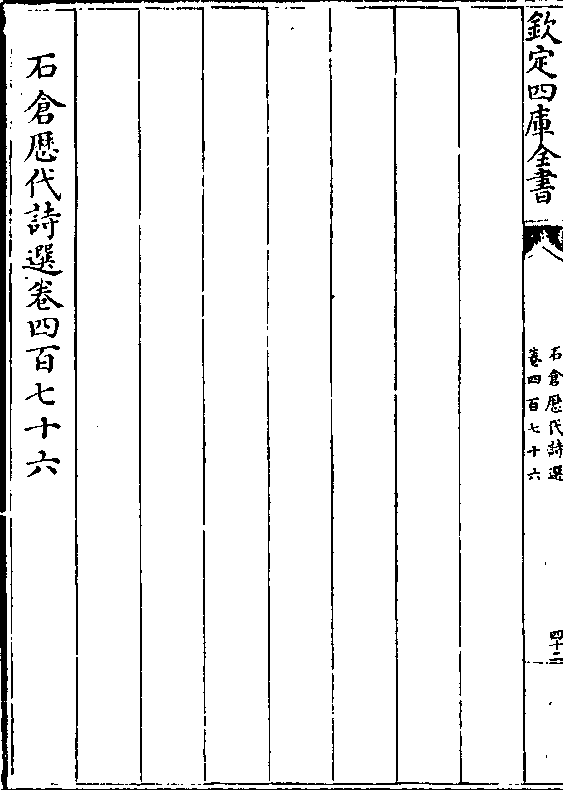 欽定四庫全書
石倉歴代詩選
卷四百七十六
四十二
石倉歴代詩選卷四百七十六